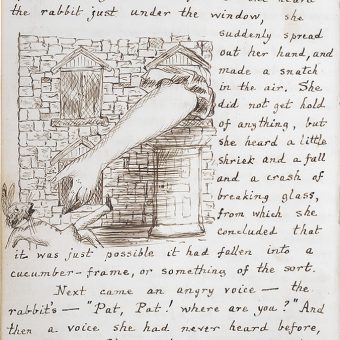 the rabbit just under the window, she
suddenly spread
out her hand, and
made a snatch
in the air. She
did not get hold
of anything, but
she heard a little
shriek and a fall
and a crash of
breaking glass,
from which she
concluded that
it was just possible it had fallen into a
cucumber-frame, or something of the sort.
Next came an angry voice — the
rabbit's — "Pat, Pat! where are you?" And
then a voice she had never heard before,